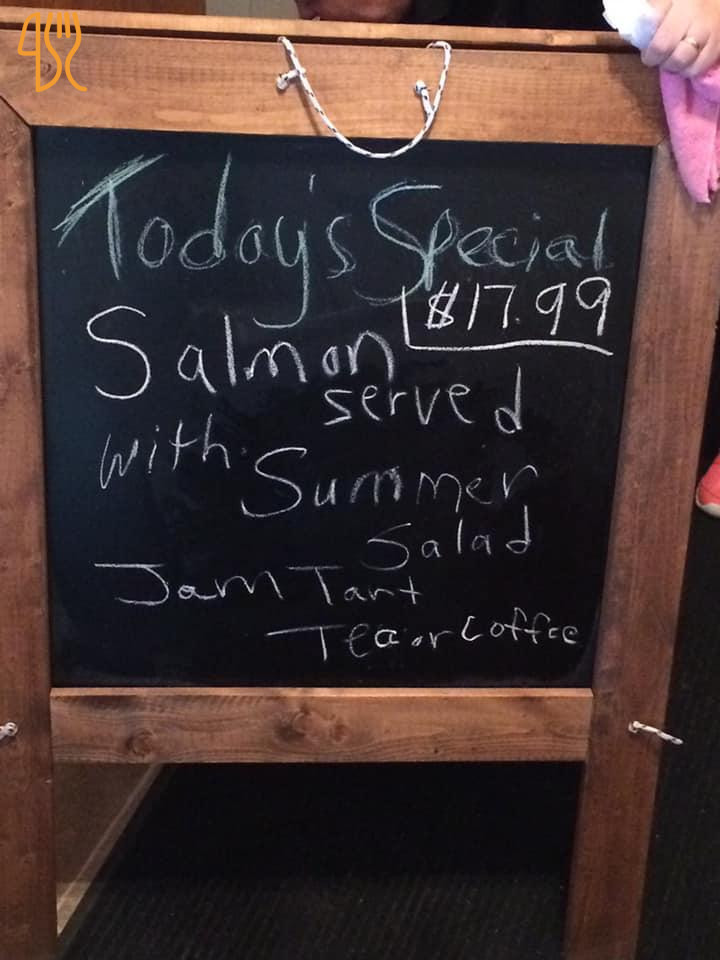 Today's Special
$17.99
Salmon
served
with Summer
Salad
Jam Tart
Tea or Coffee